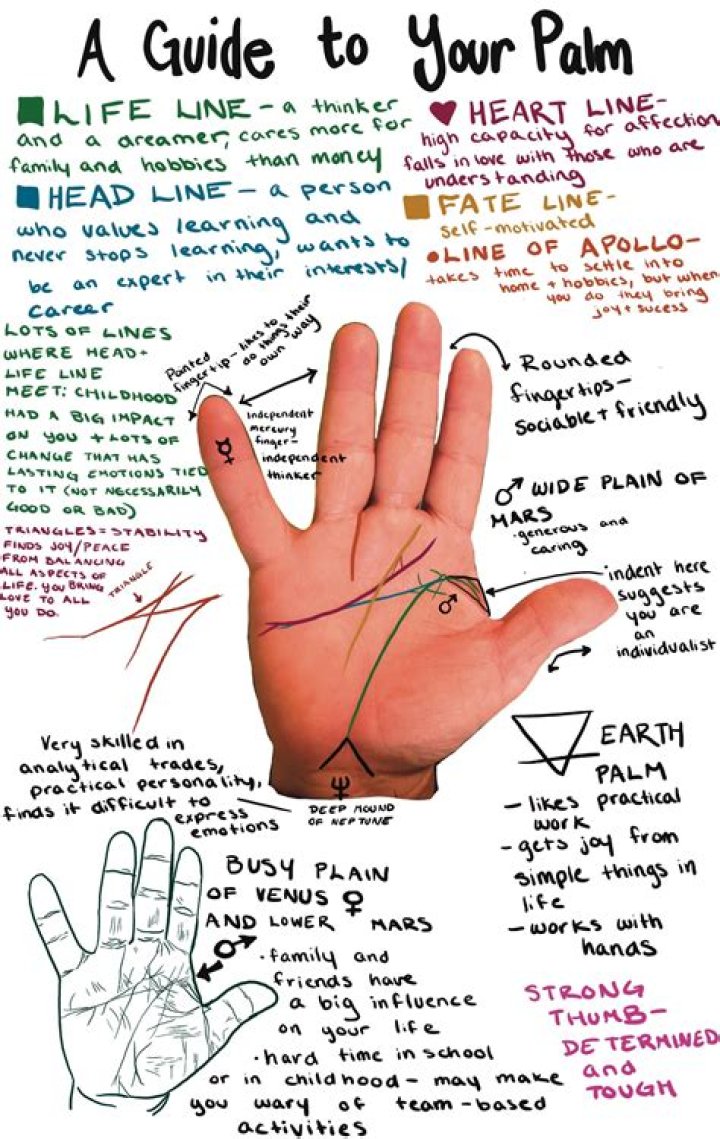 A Guide to Your Palm
LIFE LINE - a thinker
and a dreamer, cares more for
family and hobbies than money
HEART LINE-
high capacity for affection
falls in love with those who are
understanding
HEAD LINE - a person
who values learning and
never stops learning, wants to
be an expert in their interests/
career
FATE LINE-
self-motivated
LINE OF APOLLO-
takes time to settle into
home + hobbies, but when
you do they bring
joy + sucess
LOTS OF LINES
WHERE HEAD +
LIFE LINE
MEET: CHILDHOOD
HAD A BIG IMPACT
ON YOU + LOTS OF
CHANGE THAT HAS
LASTING EMOTIONS TIED
TO IT (NOT NECESSARILY
GOOD OR BAD)
Ponted
fingertip - likes to
do things their
own way
Independent
mercury
finger-
independent
thinker
☿
Rounded
fingertips-
sociable + friendly
♂ WIDE PLAIN OF
MARS
·generous and
caring
TRIANGLES = STABILITY
FINDS JOY/PEACE
FROM BALANCING
ALL ASPECTS OF
LIFE. YOU BRING
LOVE TO ALL
YOU DO.
TRIANGLE
♂
indent here
suggests
you are
an
individualist
Very skilled in
analytical trades,
practical personality,
finds it difficult to
express
emotions
♆
DEEP MOUND
OF NEPTUNE
EARTH
PALM
- likes practical
work
- gets joy from
simple things in
life
- works with
hands
BUSY PLAIN
OF VENUS ♀
AND LOWER MARS
♂
·family and
friends have
a big influence
on your life
·hard time in school
or in childhood - may make
you wary of team-based
activities
STRONG
THUMB-
DETERMINED
and
TOUGH